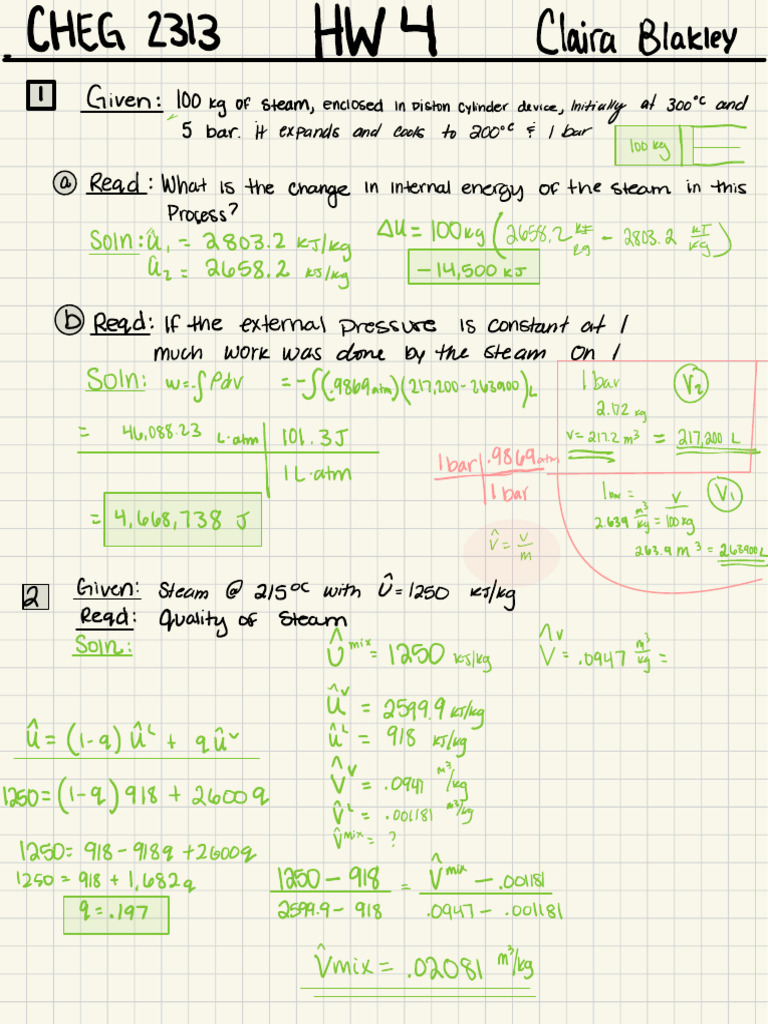 CHEG 2313 HW 4 Claira Blakley
1 Given: 100 kg of steam, enclosed in piston cylinder device, initially at 300°C and
5 bar. it expands and cools to 200°C & 1 bar
100 kg
a Reqd: What is the change in internal energy of the steam in this
Process?
Soln: û₁ = 2803.2 KJ/kg
û₂ = 2658.2 KJ/kg
ΔU = 100kg (2658.2 KJ/kg - 2803.2 KJ/kg)
-14,500 KJ
b Reqd: If the external pressure is constant at 1
much work was done by the steam on 1
Soln: w=-∫Pdv = -∫(.9869atm)(217,200-263900)L
= 46,088.23 L·atm | 101.3J
1L·atm
= 4,668,738 J
1 bar | .9869atm
1 bar
1 bar V₂
2.172 kg
V= 217.2 m³ = 217,200 L
1 bar = V₁
2.639 m³/kg = V/100kg
263.9 m³ = 263900L
V̂ = V/m
2 Given: Steam @ 215°C with Û = 1250 KJ/kg
Reqd: Quality of Steam
Soln:
Û mix = 1250 KJ/kg
V̂ᵛ = .0947 m³/kg =
Û = (1-q) Ûᴸ + qûᵛ
1250 = (1-q) 918 + 2600q
1250 = 918 - 918q + 2600q
1250 = 918 + 1,682q
q = .197
ûᵛ = 2599.9 KJ/kg
ûᴸ = 918 KJ/kg
V̂ᵛ = .0947 m³/kg
V̂ᴸ = .001181 m³/kg
V̂mix = ?
1250 - 918 / 2599.9 - 918 = V̂mix - .001181 / .0947 - .001181
V̂mix = .02081 m³/kg